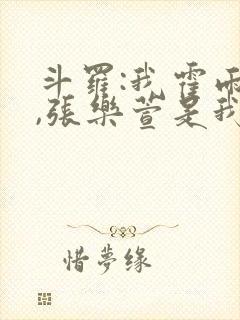 斗羅:我霍雨
,張樂萱是我
惜夢缘